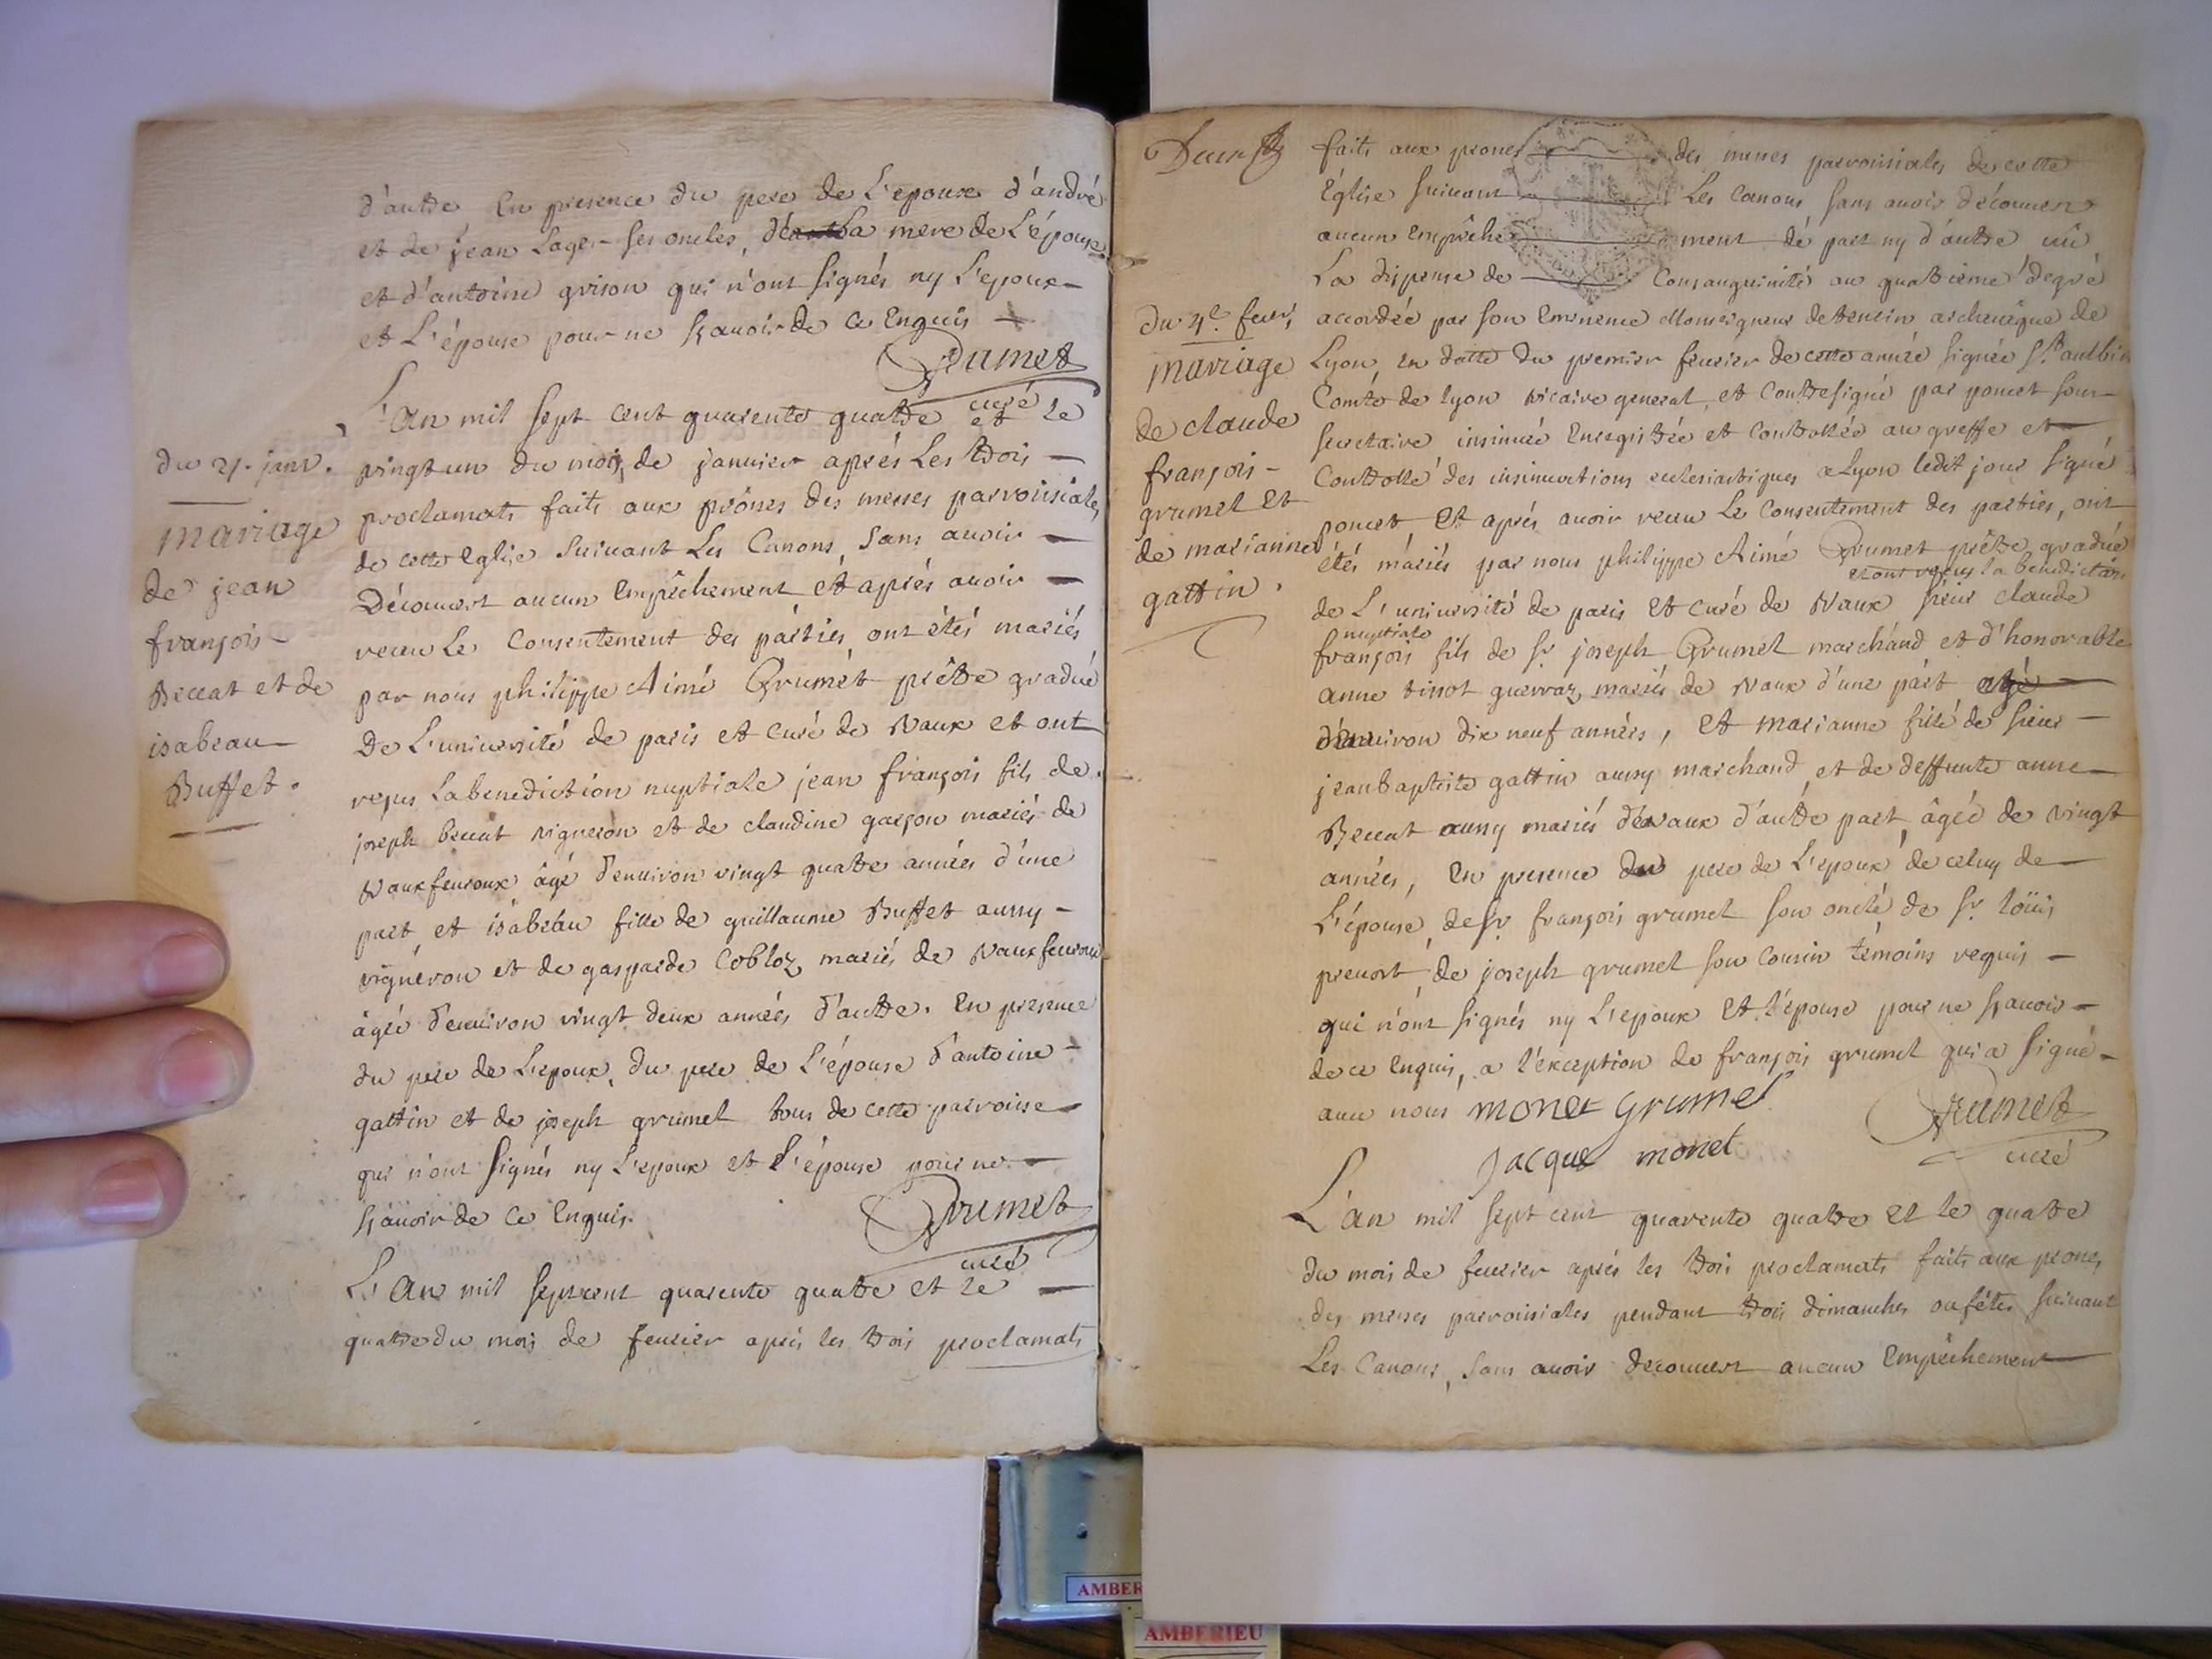 d'autre En presence du pere de L'epoux d'andré
et de jean Lager ses oncles, de la mere de L'épouse
et d'antoine grison qui n'ont signés ny L'epoux
et L'épouse pour ne sçavoir de ce Enquis
Grumet
curé
du 21. janv.
mariage
de jean
françois
Beccat et de
isabeau
Buffet.
L'An mil sept cent quarente quatre et le
vingt un du mois de janvier aprés Les trois
proclamats faits aux prônes des messes parroissiales
de cette Eglise suivant Les Canons, sans avoir
Découvert aucun Empêchement et aprés avoir
receu Le Consentement des parties, ont étés mariés
par nous philippe Aimé Grumet prêtre gradué
De L'université de paris et curé de Vaux et ont
reçus La benediction nuptiale jean françois fils de
joseph beccat vigneron et de claudine garçon mariés de
Vauxfevroux âgé d'environ vingt quatre années d'une
part et isabeau fille de guillaume Buffet aussy
vigneron et de gasparde Cobloz mariés de Vauxfevroux
âgée d'environ vingt deux années d'autre. En presence
du pere de L'epoux, du pere de L'épouse d'antoine
gattin et de joseph grumet tous de cette parroisse
qui n'ont signés ny L'epoux et L'épouse pour ne
sçavoir de ce Enquis.
Grumet
curé
L'An mil sept cent quarente quatre et le
quatre du mois de fevrier aprés les trois proclamats
du 4e. fevr,
mariage
de claude
françois
grumet et
de marianne
gattin.
faits aux prones des messes parroissiales de cette
Eglise suivant Les Canons sans avoir découvert
aucun Empêchement de part ny d'autre vû
La dispense de Consanguinité au quatrieme degré
accordée par son Eminence Monseigneur de tencin archevêque de
Lyon, en datte du premier fevrier de cette année signée St. aulbin
Comte de lyon vicaire general, et Contresigné par poncet son
secretaire insinuée Enregistrée et Controllée au greffe et
Controlle des insinuations eclesiastiques a Lyon ledit jour signé
poncet et aprés avoir receu Le Consentement des parties, ont
étés mariés par nous philippe Aimé Grumet prêtre gradué
et ont reçus la benediction
de L'université de paris et curé de Vaux sieur claude
nuptiale
françois fils de sr. joseph Grumet marchand et d'honorable
anne tissot guerraz, mariés de Vaux d'une part agé
d'environ dix neuf années, et marianne fille de sieur
jean baptiste gattin aussy marchand et de deffunte anne
Beccat aussy mariés de Vaux d'autre part, âgée de vingt
années, En presence du pere de L'epoux de celuy de
L'épouse, de sr. françois grumet son oncle de sr. loüis
prevost, de joseph grumet son cousin témoins requis
qui n'ont signés ny L'epoux et L'épouse pour ne sçavoir
de ce Enquis, a l'exception de françois grumet qui a signé
avec nous monet Grumet
Grumet
Jacque monet
curé
L'an mil sept cent quarente quatre et le quatre
du mois de fevrier aprés les trois proclamats faits aux prones
des messes parroissiales pendant trois dimanches ou fêtes suivant
Les Canons, sans avoir decouvert aucun Empêchement
AMBER
AMBERIEU